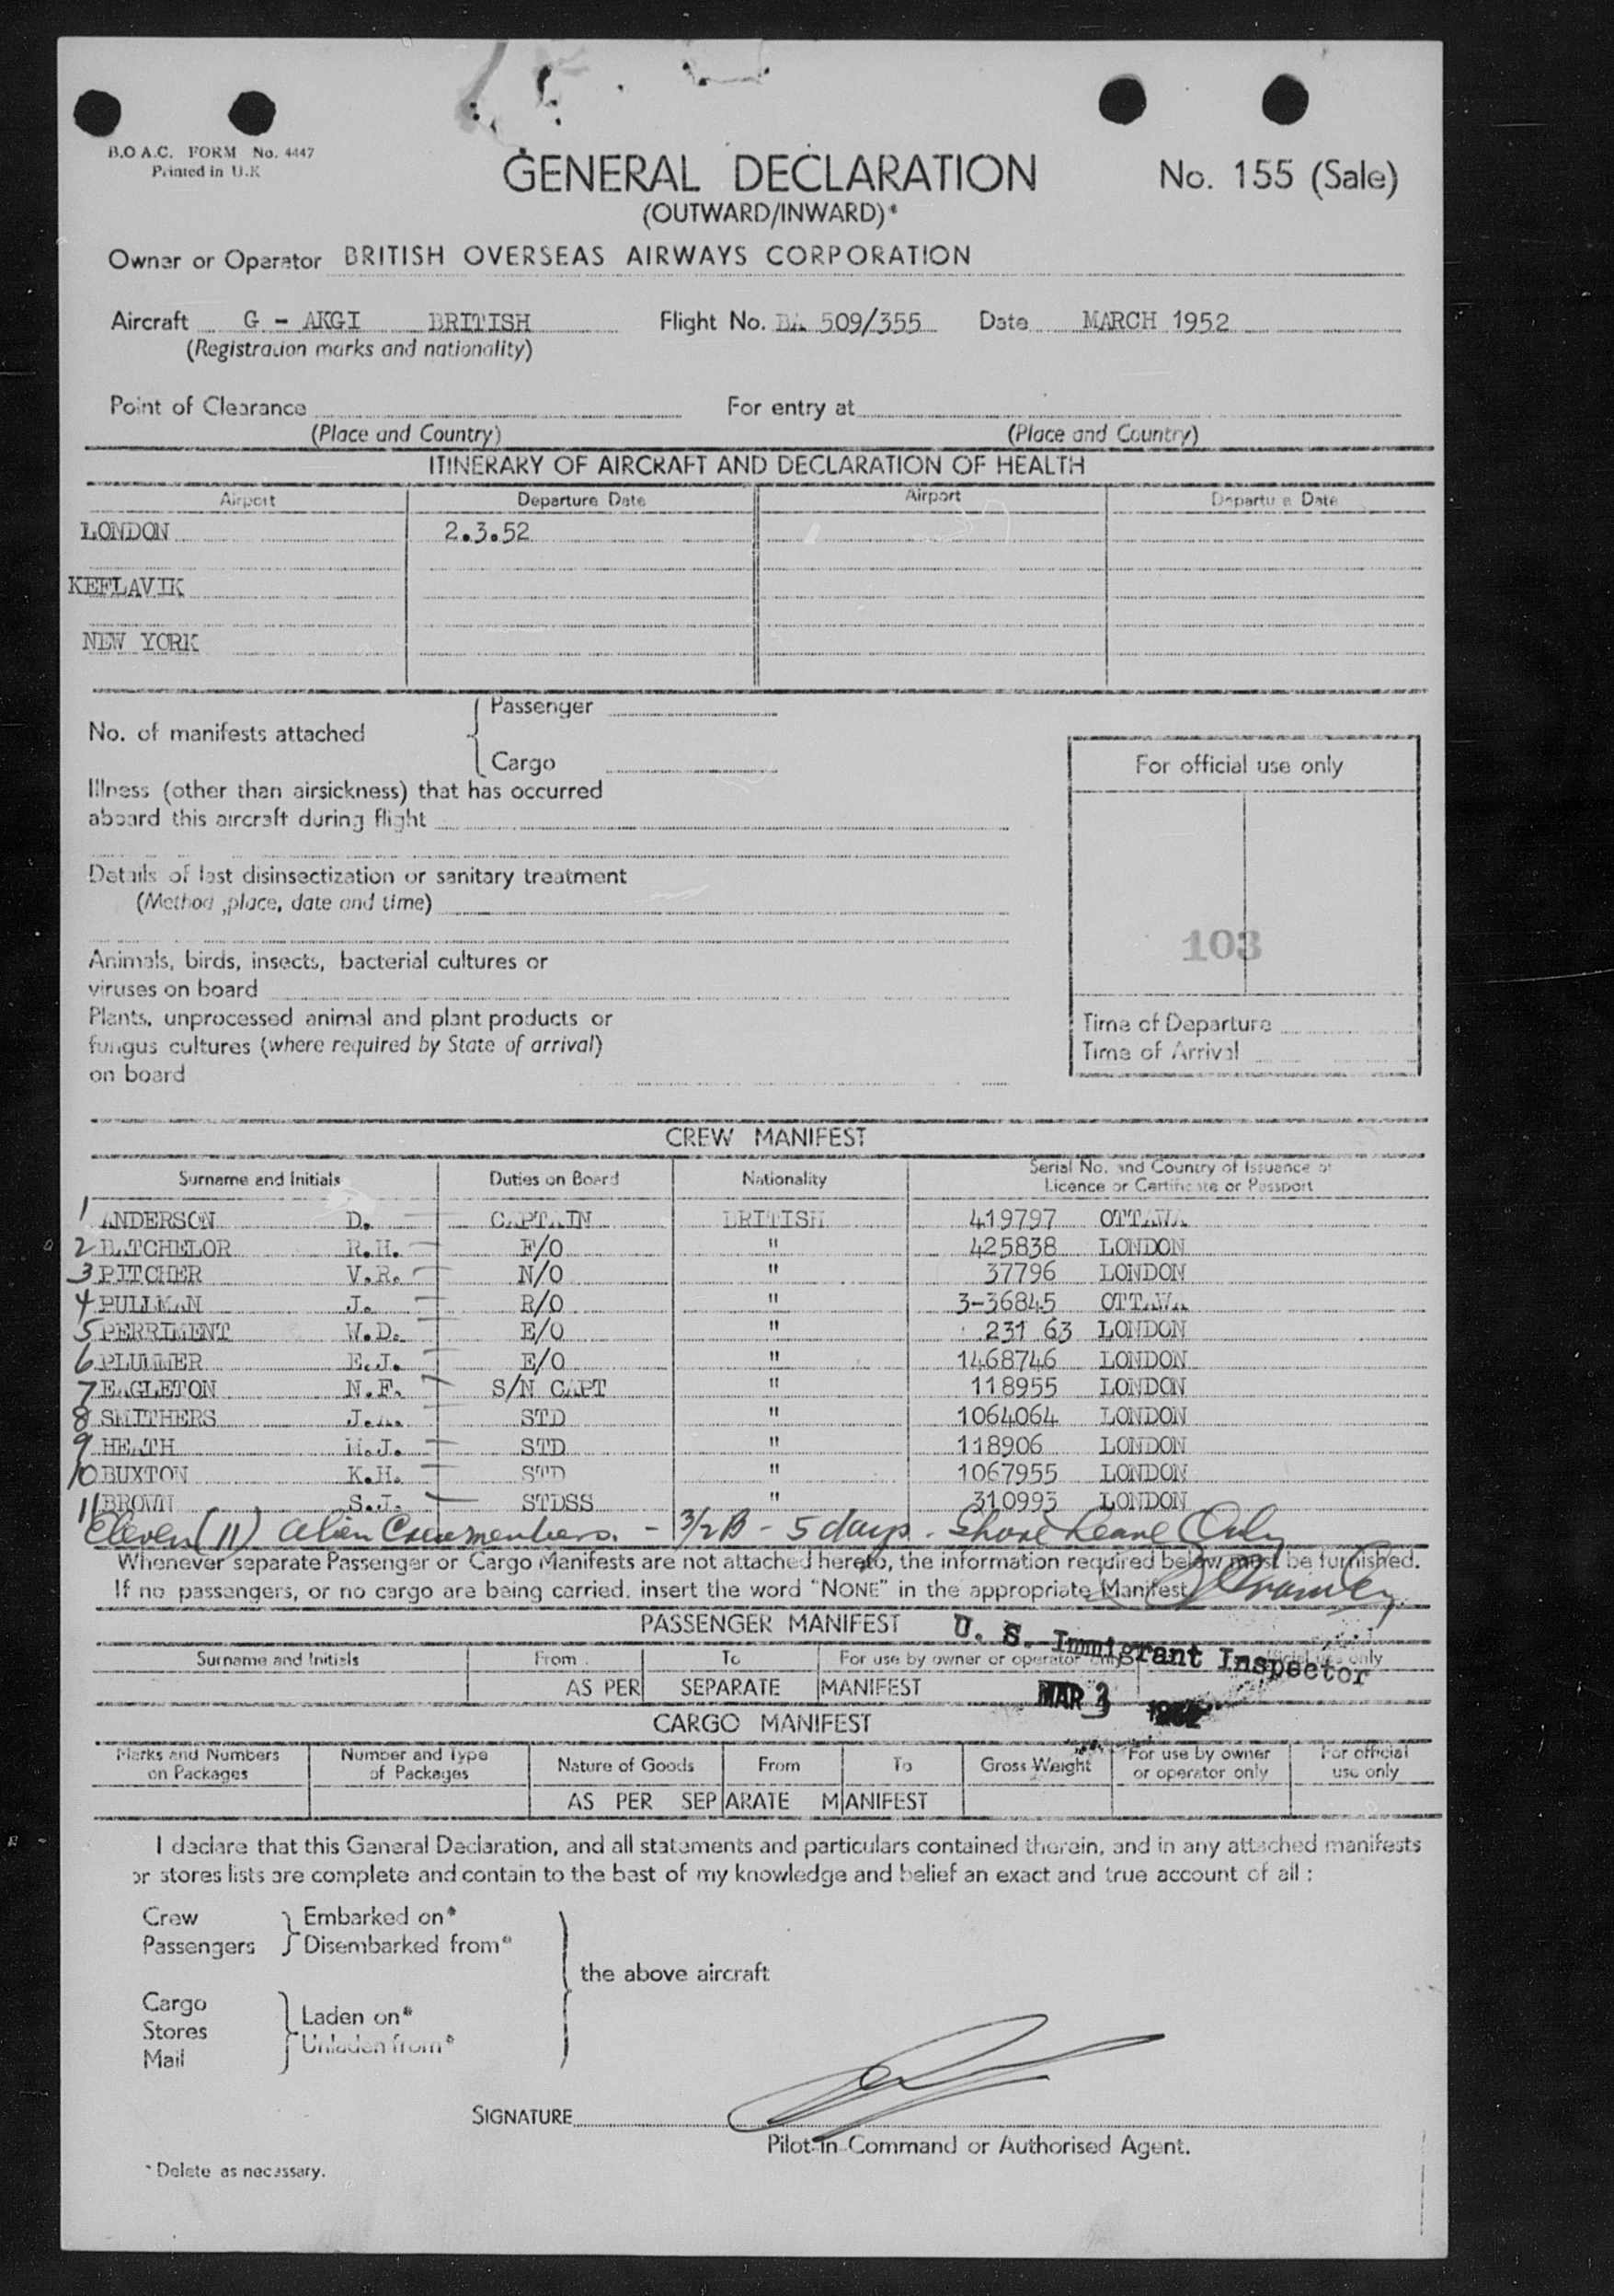 B.O.A.C. FORM No. 4447
Printed in U.K
GENERAL DECLARATION
No. 155 (Sale)
(OUTWARD/INWARD)*
Owner or Operator BRITISH OVERSEAS AIRWAYS CORPORATION
Aircraft G - AKGI BRITISH Flight No. BA 509/355 Date MARCH 1952
(Registration marks and nationality)
Point of Clearance For entry at
(Place and Country) (Place and Country)
ITINERARY OF AIRCRAFT AND DECLARATION OF HEALTH
Airport Departure Date Airport Departure Date
LONDON 2.3.52
KEFLAVIK
NEW YORK
No. of manifests attached { Passenger
Cargo
Illness (other than airsickness) that has occurred
aboard this aircraft during flight
Details of last disinsectization or sanitary treatment
(Method, place, date and time)
Animals, birds, insects, bacterial cultures or
viruses on board
Plants, unprocessed animal and plant products or
fungus cultures (where required by State of arrival)
on board
For official use only
103
Time of Departure
Time of Arrival
CREW MANIFEST
Surname and Initials Duties on Board Nationality Serial No. and Country of Issuance of Licence or Certificate or Passport
1 ANDERSON D. CAPTAIN BRITISH 419797 OTTAWA
2 BATCHELOR R.H. F/O " 425838 LONDON
3 PITCHER V.R. N/O " 37796 LONDON
4 PULLMAN J. R/O " 3-36845 OTTAWA
5 PERRIMENT W.D. E/O " 231 63 LONDON
6 PLUMMER E.J. E/O " 1468746 LONDON
7 EAGLETON N.F. S/N CAPT " 118955 LONDON
8 SMITHERS J.A. STD " 1064064 LONDON
9 HEATH M.J. STD " 118906 LONDON
10 BUXTON K.H. STD " 1067955 LONDON
11 BROWN S.J. STDSS " 310993 LONDON
Eleven (11) alien Crewmembers. - 3/2B - 5 days. Shore Leave Only
Whenever separate Passenger or Cargo Manifests are not attached hereto, the information required below must be furnished.
If no passengers, or no cargo are being carried. insert the word "NONE" in the appropriate Manifest
PASSENGER MANIFEST
U. S. Immigrant Inspector
Surname and Initials From To For use by owner or operator only official use only
AS PER SEPARATE MANIFEST
MAR 3 1952
CARGO MANIFEST
Marks and Numbers on Packages Number and Type of Packages Nature of Goods From To Gross Weight For use by owner or operator only For official use only
AS PER SEPARATE MANIFEST
I declare that this General Declaration, and all statements and particulars contained therein, and in any attached manifests
or stores lists are complete and contain to the best of my knowledge and belief an exact and true account of all :
Crew } Embarked on*
Passengers } Disembarked from*
the above aircraft
Cargo
Stores } Laden on*
Mail } Unladen from*
SIGNATURE
Pilot-in-Command or Authorised Agent.
*Delete as necessary.